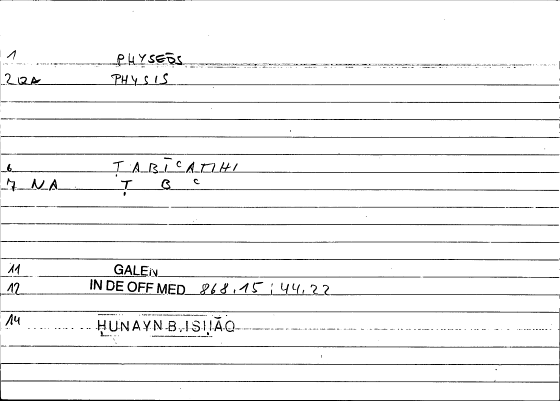 1 PHYSEŌS
2 QA PHYSIS
6 ṬABĪᶜATIHI
7 NA Ṭ B ᶜ
11 GALEN
12 IN DE OFF MED 868.15 ; 44.22
14 ḤUNAYN B. ISḤĀQ